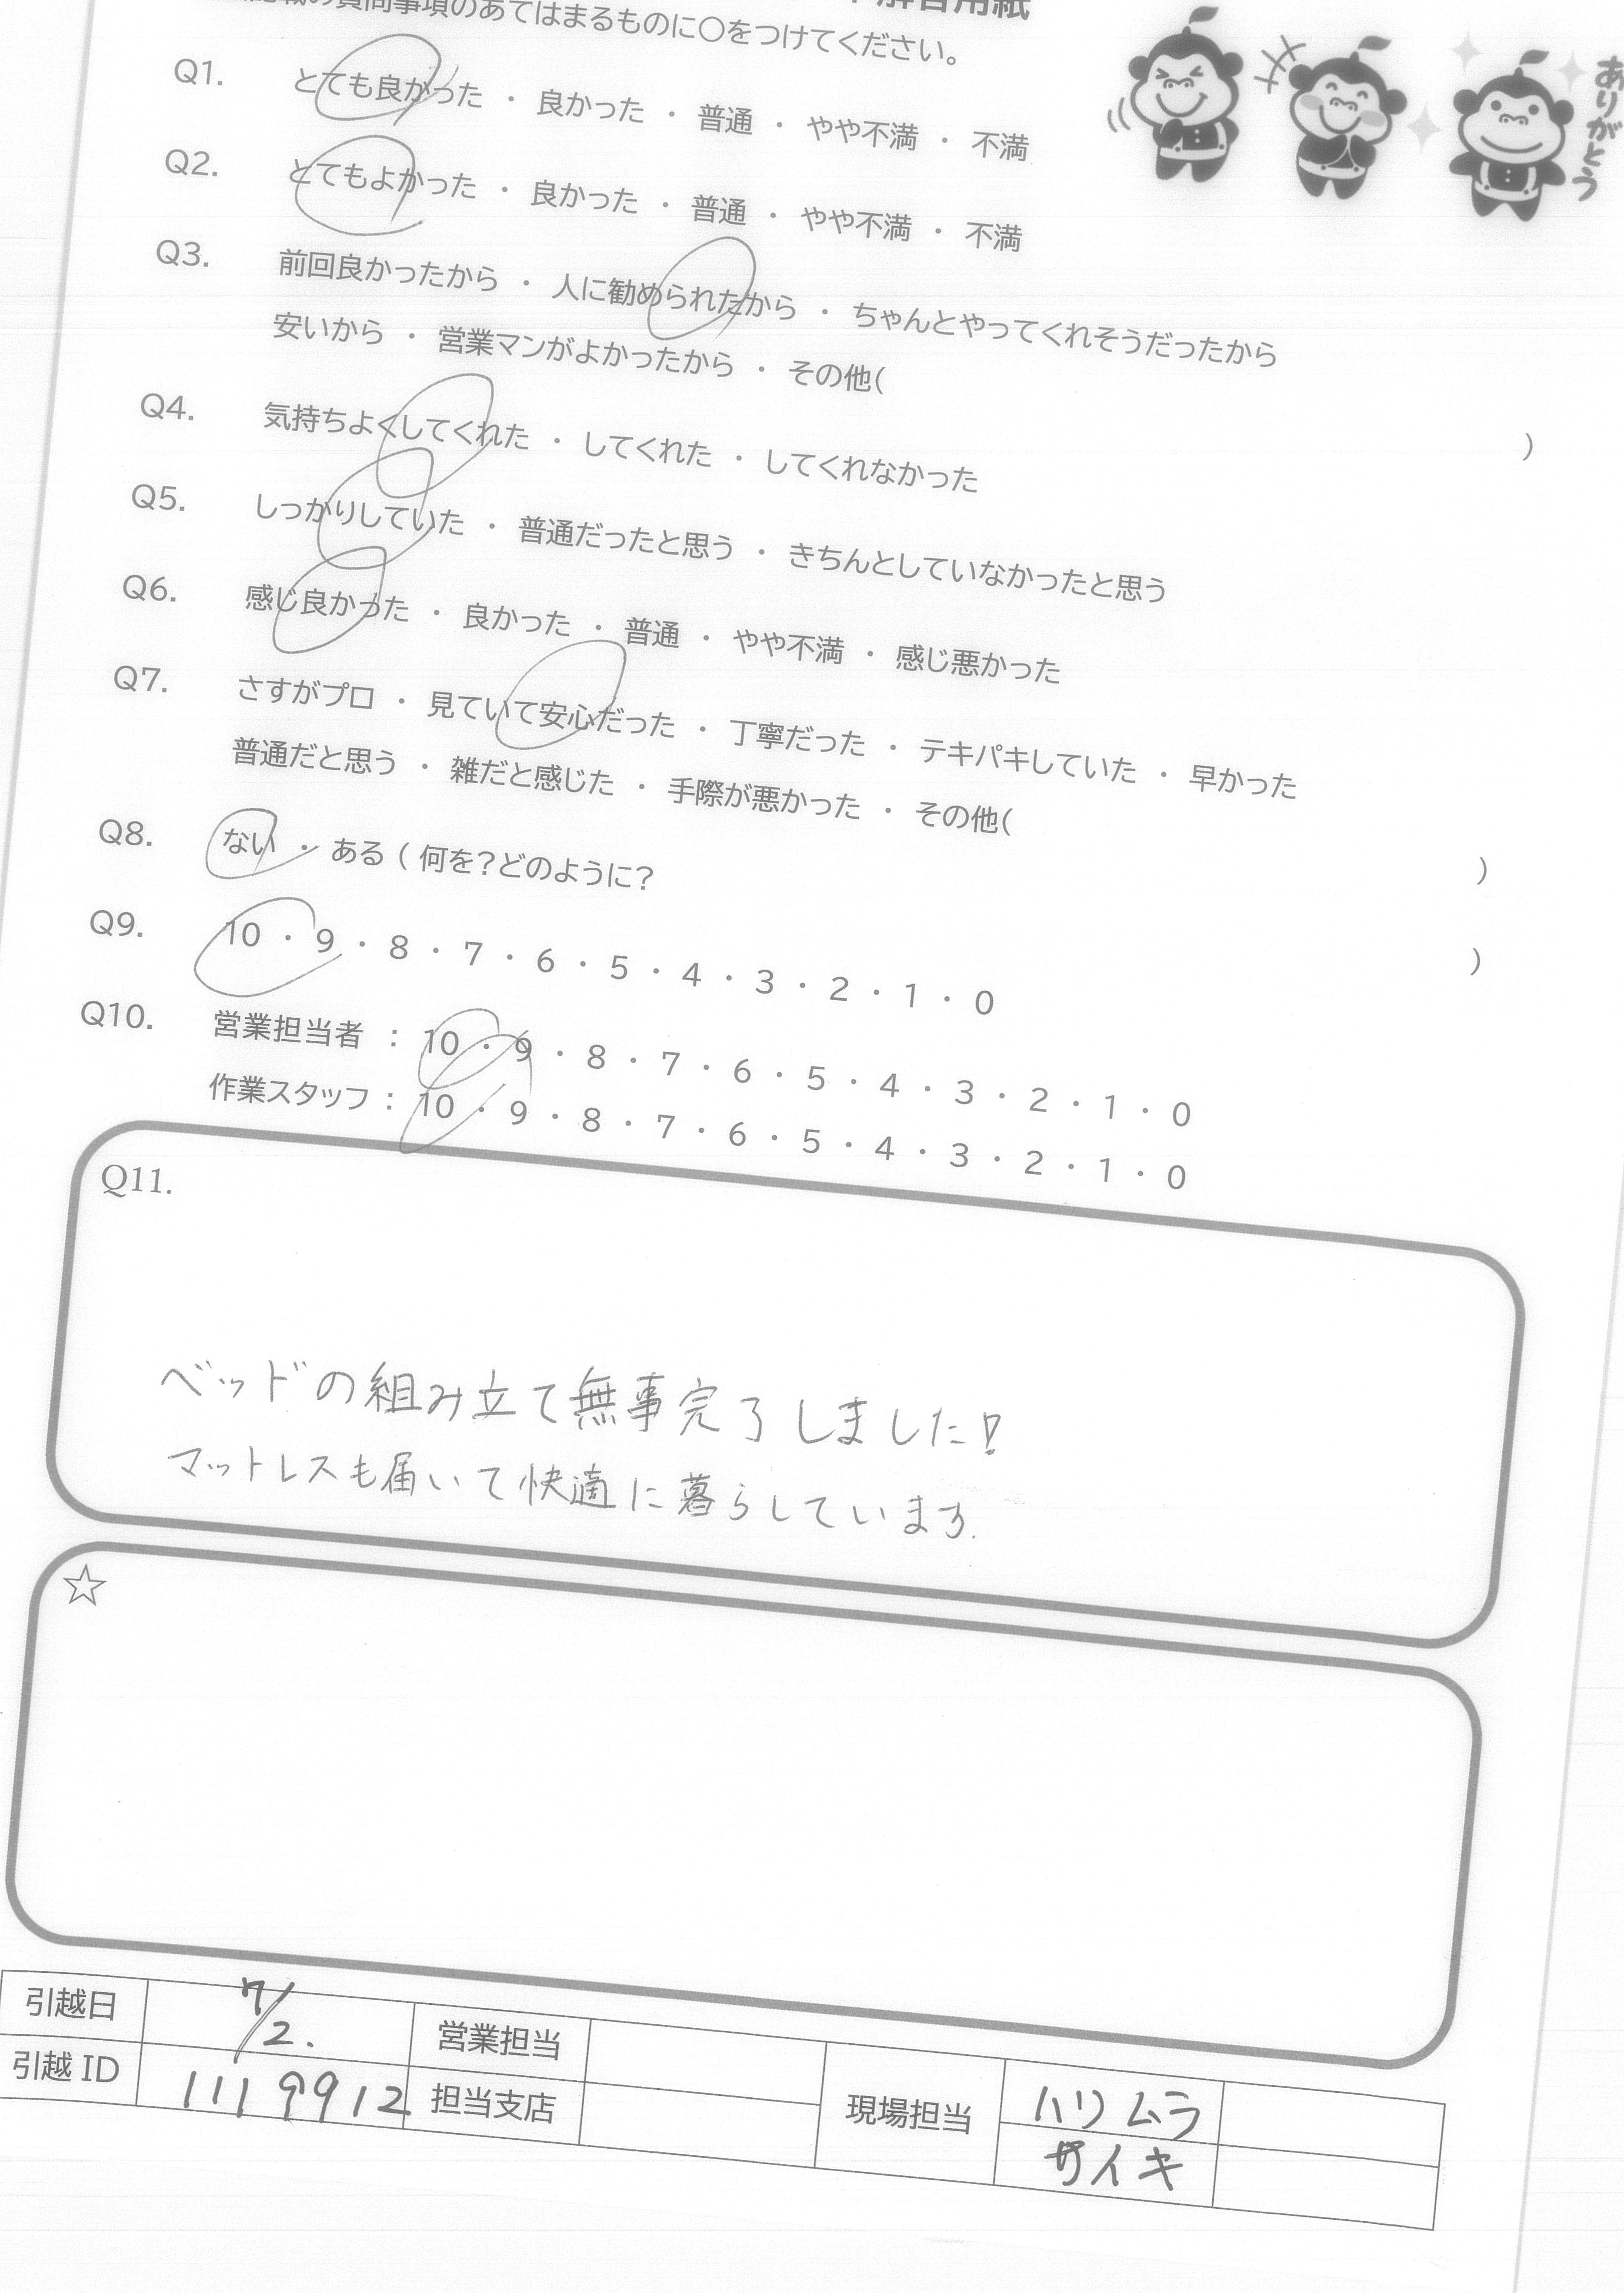 解答用紙
の質問事項のあてはまるものに○をつけてください。
ありがとう
Q1. とても良かった ・ 良かった ・ 普通 ・ やや不満 ・ 不満
Q2. とてもよかった ・ 良かった ・ 普通 ・ やや不満 ・ 不満
Q3. 前回良かったから ・ 人に勧められたから ・ ちゃんとやってくれそうだったから
安いから ・ 営業マンがよかったから ・ その他( )
Q4. 気持ちよくしてくれた ・ してくれた ・ してくれなかった
Q5. しっかりしていた ・ 普通だったと思う ・ きちんとしていなかったと思う
Q6. 感じ良かった ・ 良かった ・ 普通 ・ やや不満 ・ 感じ悪かった
Q7. さすがプロ ・ 見ていて安心だった ・ 丁寧だった ・ テキパキしていた ・ 早かった
普通だと思う ・ 雑だと感じた ・ 手際が悪かった ・ その他( )
Q8. ない ・ ある ( 何を?どのように? )
Q9. 10 ・ 9 ・ 8 ・ 7 ・ 6 ・ 5 ・ 4 ・ 3 ・ 2 ・ 1 ・ 0
Q10. 営業担当者 : 10 ・ 9 ・ 8 ・ 7 ・ 6 ・ 5 ・ 4 ・ 3 ・ 2 ・ 1 ・ 0
作業スタッフ : 10 ・ 9 ・ 8 ・ 7 ・ 6 ・ 5 ・ 4 ・ 3 ・ 2 ・ 1 ・ 0
Q11.
ベッドの組み立て無事完了しました!
マットレスも届いて快適に暮らしています.
☆
引越日 7/2. 営業担当
引越 ID 1119912 担当支店 現場担当 ハリムラ
サイキ